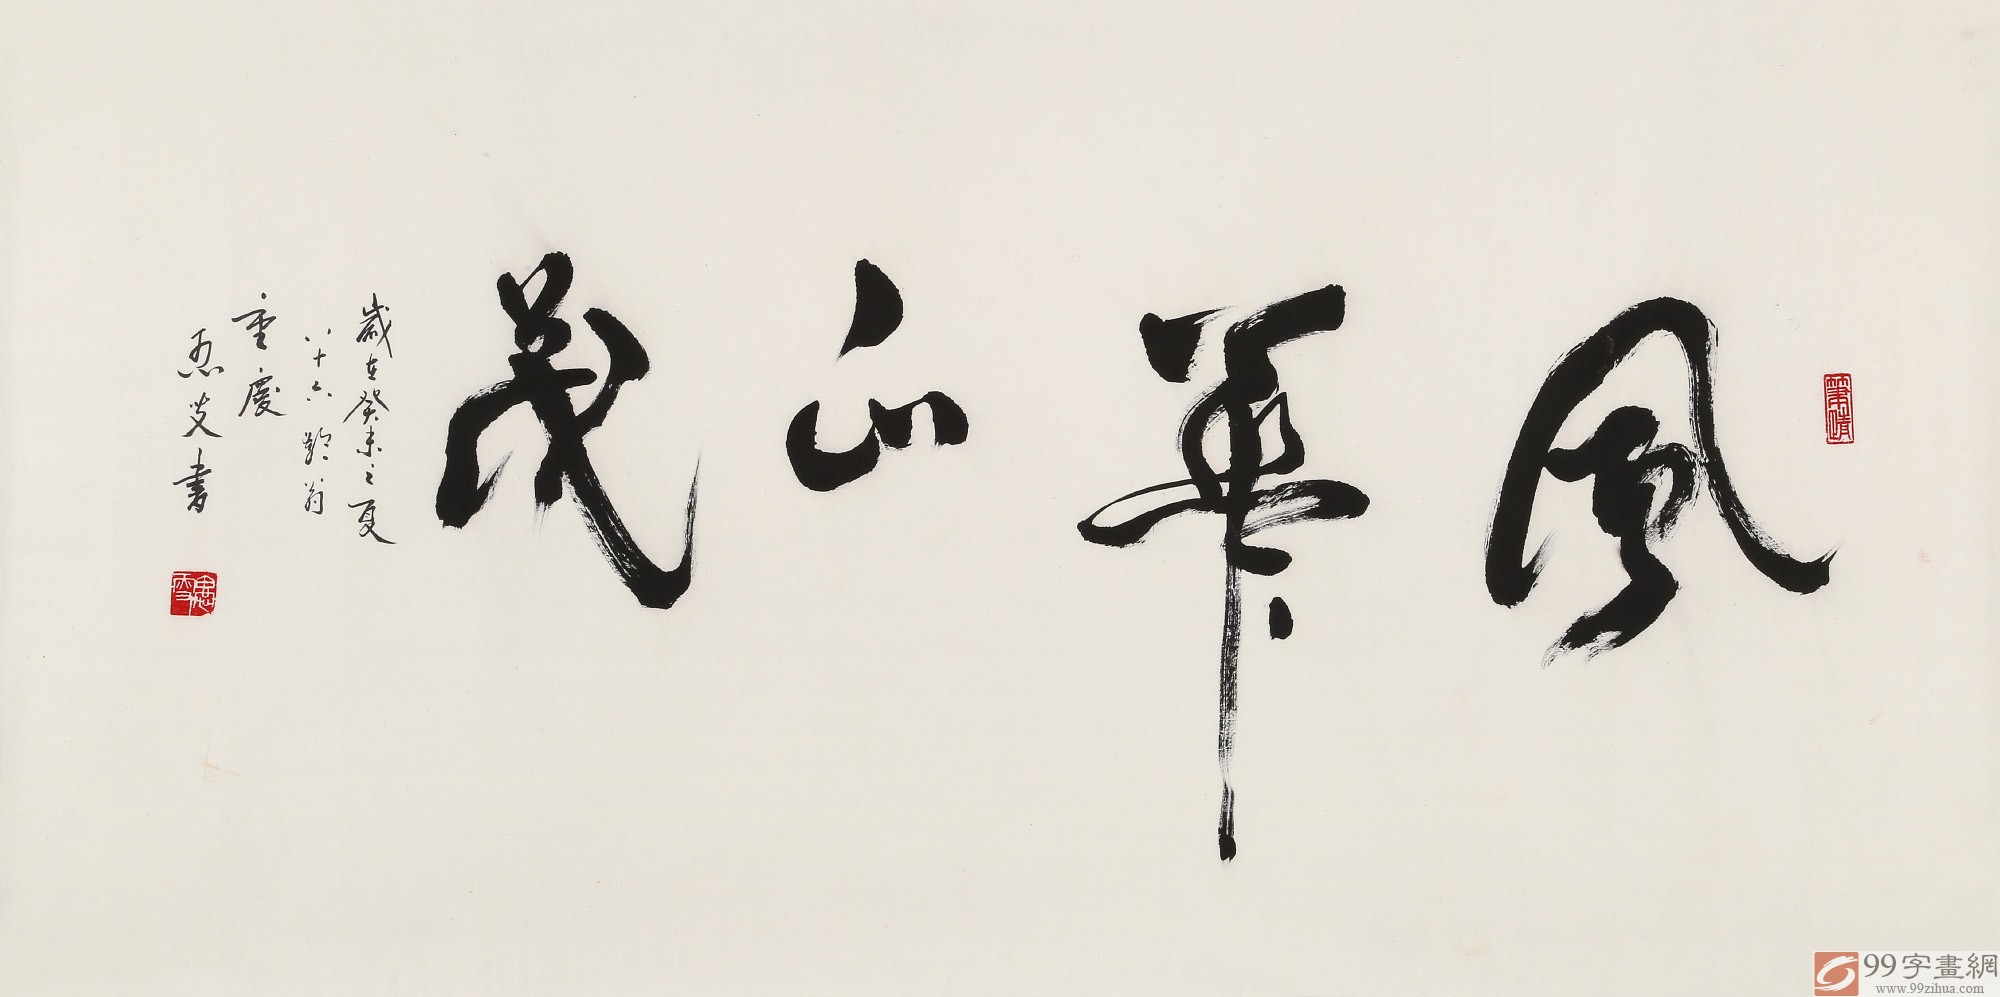 風華正茂
歲在癸未之夏
八十六齡翁
重慶
書
99字畫網
www.99zihua.com